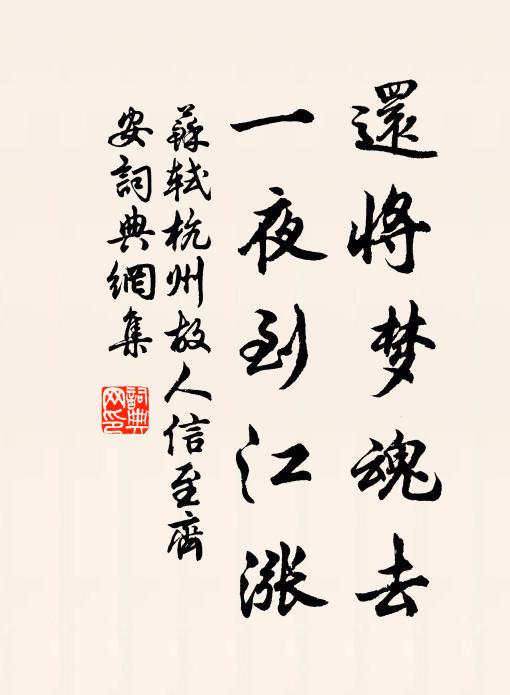 還將梦魂去
一夜到江涨
蘇軾杭州故人信至齊
安詞典網集
詞典
网印